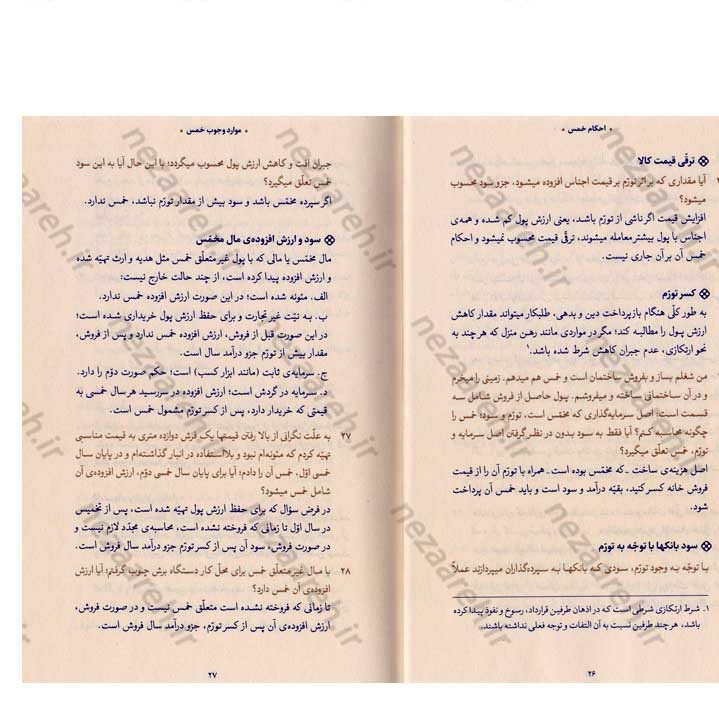 • احکام خمس •
ترقّی قیمت کالا
آیا مقداری که بر اثر تورّم بر قیمت اجناس افزوده میشود، جزو سود محسوب
میشود؟
افزایش قیمت اگر ناشی از تورّم باشد، یعنی ارزش پول کم شده و همه‌ی
اجناس با پول بیشتر معامله میشوند، ترقّی قیمت محسوب نمیشود و احکام
خمس آن بر آن جاری نیست.
کسر تورّم
به طور کلّی هنگام بازپرداخت دین و بدهی، طلبکار میتواند مقدار کاهش
ارزش پول را مطالبه کند؛ مگر در مواردی مانند رهن منزل که هر چند به
نحو ارتکازی، عدم جبران کاهش شرط شده باشد.۱
من شغلم بساز و بفروش ساختمان است و خمس هم میدهم. زمینی را میخرم
و در آن ساختمانی ساخته و میفروشم. پول حاصل از فروش شامل سه
قسمت است: اصل سرمایه‌گذاری که مخمّس است، تورّم و سود؛ خمس را
چگونه محاسبه کنم؟ آیا فقط به سود بدون در نظر گرفتن اصل سرمایه و
تورّم، خمس تعلّق میگیرد؟
اصل هزینه‌ی ساخت ـ که مخمّس بوده است ـ همراه با تورّم آن را از قیمت
فروش خانه کسر کنید، بقیّه درآمد و سود است و باید خمس آن پرداخت
شود.
سود بانکها با توجّه به تورّم
با توجّه به وجود تورّم، سودی که بانکها به سپرده‌گذاران میپردازند عملاً
۱. شرط ارتکازی شرطی است که در اذهان طرفین قرارداد، رسوخ و نفوذ پیدا کرده
باشد، هر چند طرفین نسبت به آن التفات و توجه فعلی نداشته باشند.
۲۶
• موارد وجوب خمس •
جبران اُفت و کاهش ارزش پول محسوب میگردد؛ با این حال آیا به این سود
خمس تعلّق میگیرد؟
اگر سپرده مخمّس باشد و سود بیش از مقدار تورّم نباشد، خمس ندارد.
سود و ارزش افزوده‌ی مال مخمّس
مال مخمّس یا مالی که با پول غیر متعلّق خمس مثل هدیه و ارث تهیّه شده
و ارزش افزوده پیدا کرده است، از چند حالت خارج نیست:
الف. مئونه شده است؛ در این صورت ارزش افزوده خمس ندارد.
ب. به نیّت غیر تجارت و برای حفظ ارزش پول خریداری شده است؛
در این صورت قبل از فروش، ارزش افزوده خمس ندارد و پس از فروش،
مقدار بیش از تورّم جزو درآمد سال است.
ج. سرمایه‌ی ثابت (مانند ابزار کسب) است؛ حکم صورت دوّم را دارد.
د. سرمایه در گردش است؛ ارزش افزوده در سررسید هر سال خمسی به
قیمتی که خریدار دارد، پس از کسر تورّم مشمول خمس است.
۲۷ به علّت نگرانی از بالا رفتن قیمتها یک فرش دوازده متری به قیمت مناسبی
تهیّه کردم که مئونه‌ام نبود و بلااستفاده در انبار گذاشته‌ام و در پایان سال
خمسی اوّل، خمس آن را دادم؛ آیا برای پایان سال خمسی دوّم، ارزش افزوده‌ی آن
شامل خمس میشود؟
در فرض سؤال که برای حفظ ارزش پول تهیّه شده است، پس از تخمیس
در سال اوّل تا زمانی که فروخته نشده است، محاسبه‌ی مجدّد لازم نیست و
در صورت فروش، سود آن پس از کسر تورّم جزو درآمد سال فروش است.
۲۸ با مال غیر متعلّق خمس برای محلّ کار دستگاه برش چوب گرفتم؛ آیا ارزش
افزوده‌ی آن خمس دارد؟
تا زمانی که فروخته نشده است متعلّق خمس نیست و در صورت فروش،
ارزش افزوده‌ی آن پس از کسر تورّم، جزو درآمد سال فروش است.
۲۷
nezaareh.ir